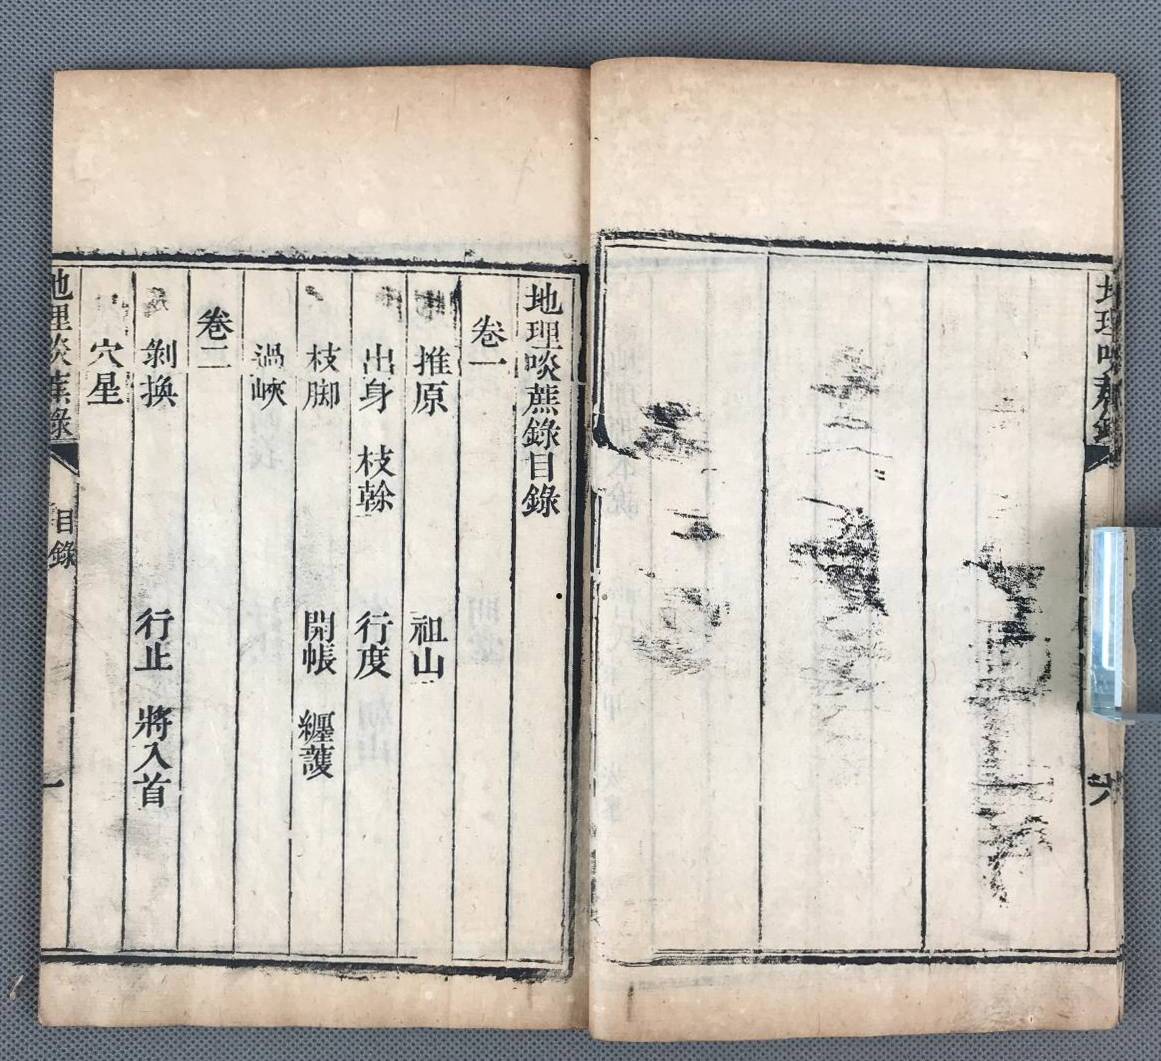 地理啖蔗錄
六
地理啖蔗錄目錄
卷一
推原 祖山
出身 枝榦 行度
枝脚 開帳 纒護
過峽
卷二
剝換 行止 將入首
穴星
地理啖蔗錄 目錄 一